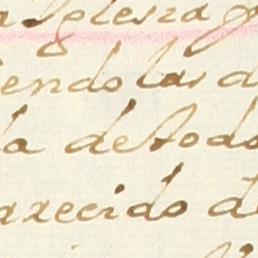 a Iglesia g
iendo las d
la de todo
arecido d